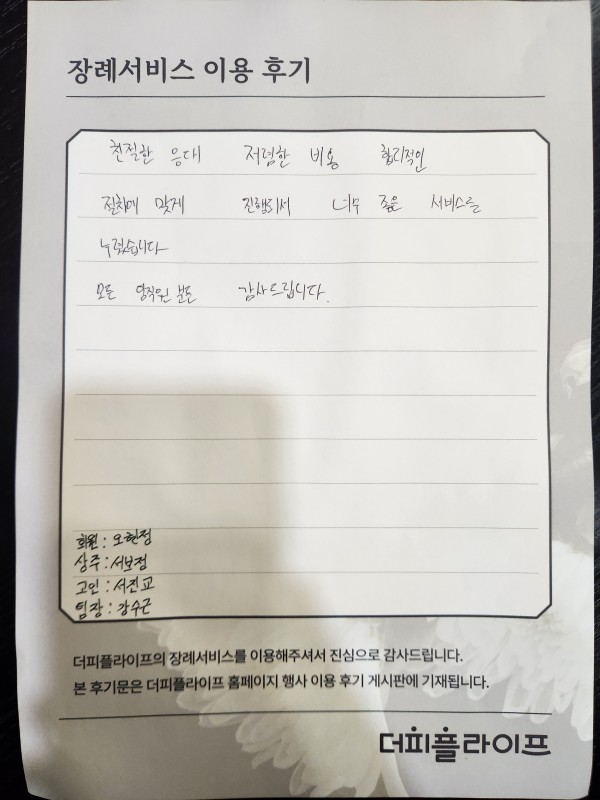 장례서비스 이용 후기
친절한 응대 저렴한 비용 합리적인
절차에 맞게 진행되서 너무 좋은 서비스를
누렸습니다
모든 임직원 분들 감사드립니다.
회원 : 오현정
상주 : 서보정
고인 : 서진교
팀장 : 강수근
더피플라이프의 장례서비스를 이용해주셔서 진심으로 감사드립니다.
본 후기문은 더피플라이프 홈페이지 행사 이용 후기 게시판에 기재됩니다.
더피플라이프